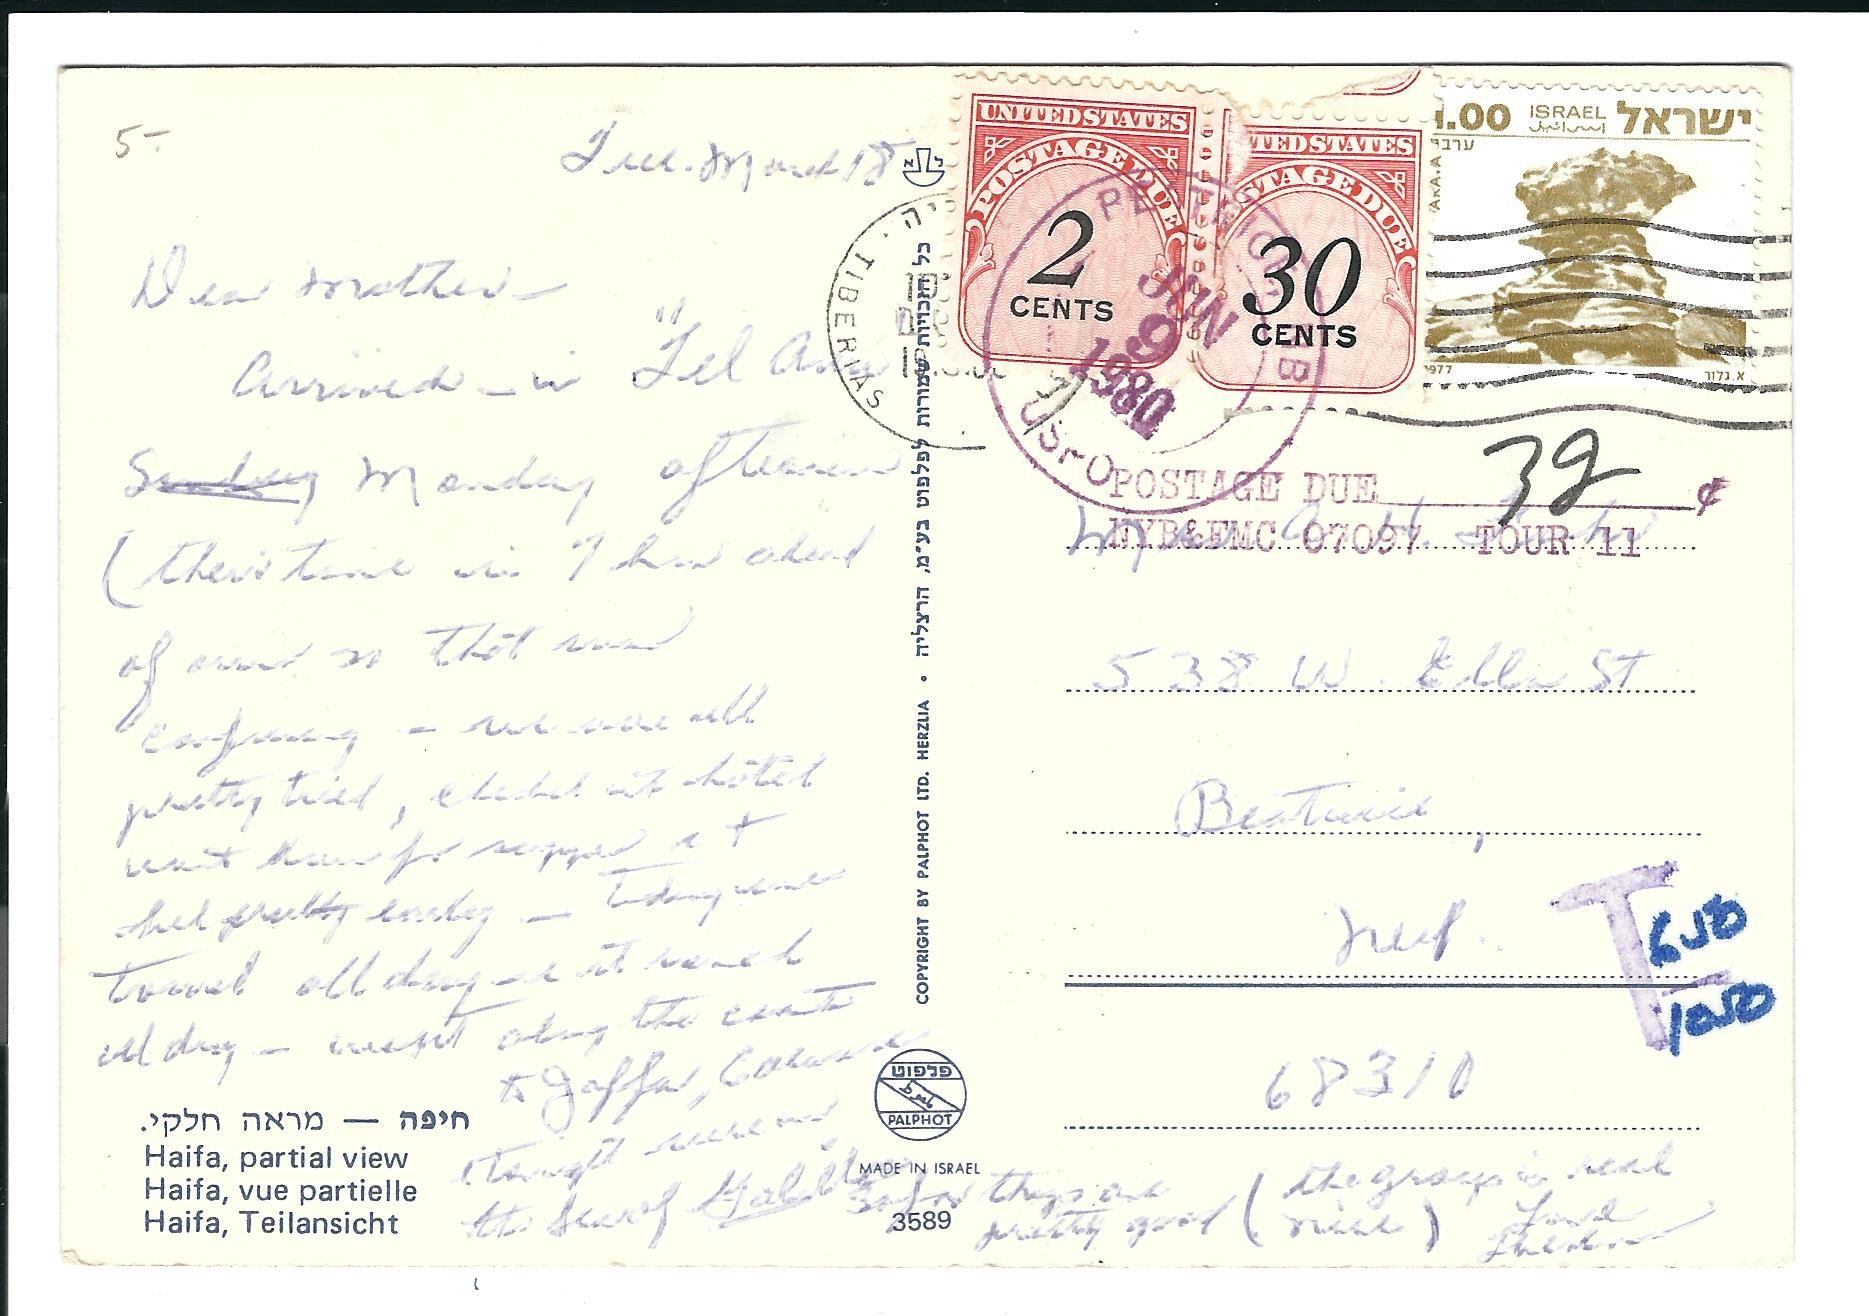 5-
Tue. March 18
Dear Mother -
Arrived - in "Tel Aviv
Sunday Monday afternoon
(their time is 7 hrs ahead
of ours so that was
confusing - we were all
pretty tired, checked into hotel
went down for supper &
bed pretty early - Today we
travel all day & it rained
all day - went along the coast
to Jaffa,
tonight we're on
the Sea of Galilee
So far things are
pretty good (the group is real
nice)
Love
חיפה — מראה חלקי.
Haifa, partial view
Haifa, vue partielle
Haifa, Teilansicht
כל הזכויות שמורות לפלפוט בע״מ, הרצליה • COPYRIGHT BY PALPHOT LTD. HERZLIA
פלפוט
PALPHOT
MADE IN ISRAEL
3589
TIBERIAS
UNITED STATES
POSTAGE DUE
2
CENTS
UNITED STATES
POSTAGE DUE
30
CENTS
JUN
9
1980
USPO
1.00 ISRAEL ישראל
إسرائيل
1977
א. גלזר
POSTAGE DUE 32 ¢
NYB&FMC 07097 TOUR 11
538 W. Ella St
Beatrice,
Neb.
68310
T